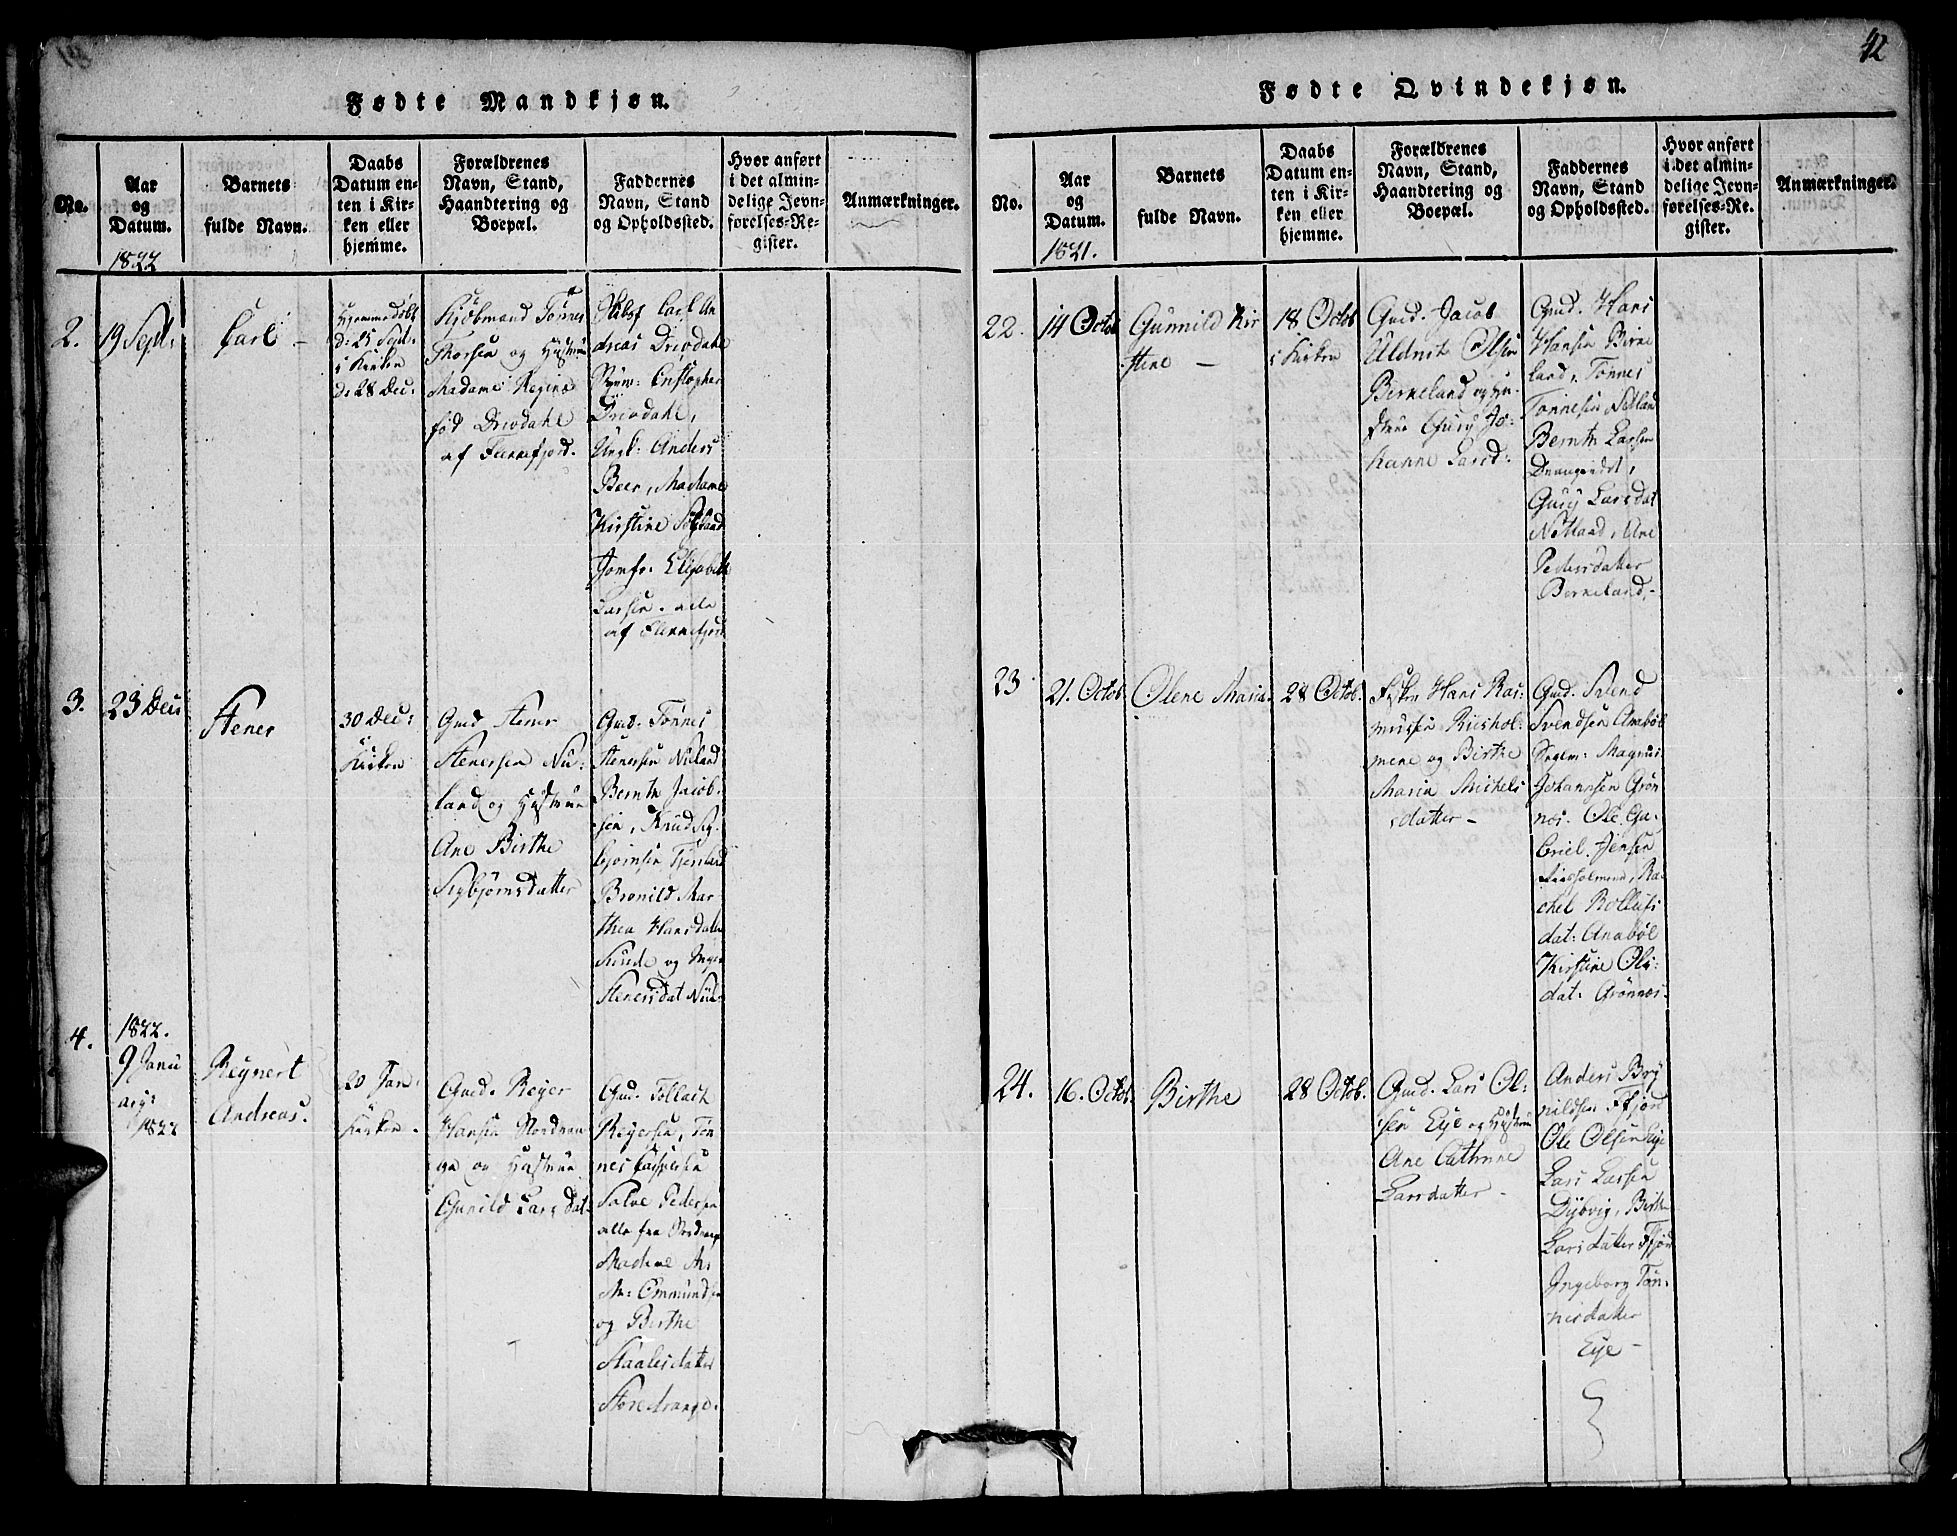 Fødte Mandkjøn.
No.
Aar
og
Datum.
1822
Barnets
fulde Navn.
Daabs
Datum en-
ten i Kir-
ken eller
hjemme.
Forældrenes
Navn, Stand,
Haandtering og
Boepæl.
Faddernes
Navn, Stand
og Opholdssted.
Hvor anført
i det almin-
delige Jevn-
førelses-Re-
gister.
Anmærkninger.
2.
19 Sept:
Carl –
Hjemmedøbt
d: 25 Sept.
i Kirken
d: 28 Dec:
Kjøbmand Tønnes
Thorsen og Hustrue
Madame Regine
fød Drivdahl
af Flekkefjord.
Carl An
dreas Drivdahl
Christopher
Drivdahl,
Ungk: Anders
Beer, Madame
Kirstine
Jomfr: Elisabeth
Larsen. alle
af Flekkefjord
3.
23 Dec:
Stener
30 Dec:
i
Kirken
Gmd Stener
Stenersen Nu-
land og Hustrue
Ane Birthe
Sigbjørnsdatter
Gmd: Tønnes
Stenersen Nuland
Bernth Jacob-
sen, Knud Sig-
bjørnsen
Bronild Mar
thea Hansdatter
og Inger
Stenersdat Nul-
4.
1822.
9 Janu
ary:
1822
Reynert
Andreas.
20 Jan:
Kirken.
Gmd. Reyer
Hansen
og Hustrue
Gunild Larsdat-
Gmd. Tollack
Reyersen, Tøn
nes Caspersen
Salve Pedersen
alle fra
Madame
Ommundsen
og Birthe
Staalesdatter
Storedrange.
42
Fødte Qvindekjøn.
No.
Aar
og
Datum.
1821.
Barnets
fulde Navn.
Daabs
Datum en-
ten i Kir-
ken eller
hjemme.
Forældrenes
Navn, Stand,
Haandtering og
Boepæl.
Faddernes
Navn, Stand
og Opholdssted.
Hvor anført
i det almin-
delige Jevn-
førelses-Re-
gister.
Anmærkninger.
22.
14 Octob
Gunnild Kir
stine –
18 Octob
i Kirken
Gmd. Jacob
Olsen
Birkeland og Hu-
strue Gury Jo-
hanne Larsd:
Gmd. Hans
Hansen Birke
land, Tønnes
Tønnesen Netland
Bernth Larsen
Gury Larsdat
Netland, Ane
Pedersdatter
Birkeland.
23
21. Octob.
Olene Maria.
28 Octob.
Hans Ras-
musen
og Birthe
Maria Michels
datter –
Gmd. Svend
Svendsen Anabøl
Magnus
Johannsen Grøn
nes. Ole Ga-
briel Jensen
Ra
chel Rollufs
dat: Anabøl
Kirstine Ols-
dat: Grønnes.
24.
16. Octob.
Birthe
28 Octob.
Gmd. Lars Ol-
sen Eye og Hustrue
Ane Cathrine
Larsdatter –
Anders Bry
nildsen Ffjord
Ole Olsen Eye
Lars Larsen
Dybvig, Birthe
Larsdatter Ffjord
Ingeborg Tøn-
nesdatter
Eye –